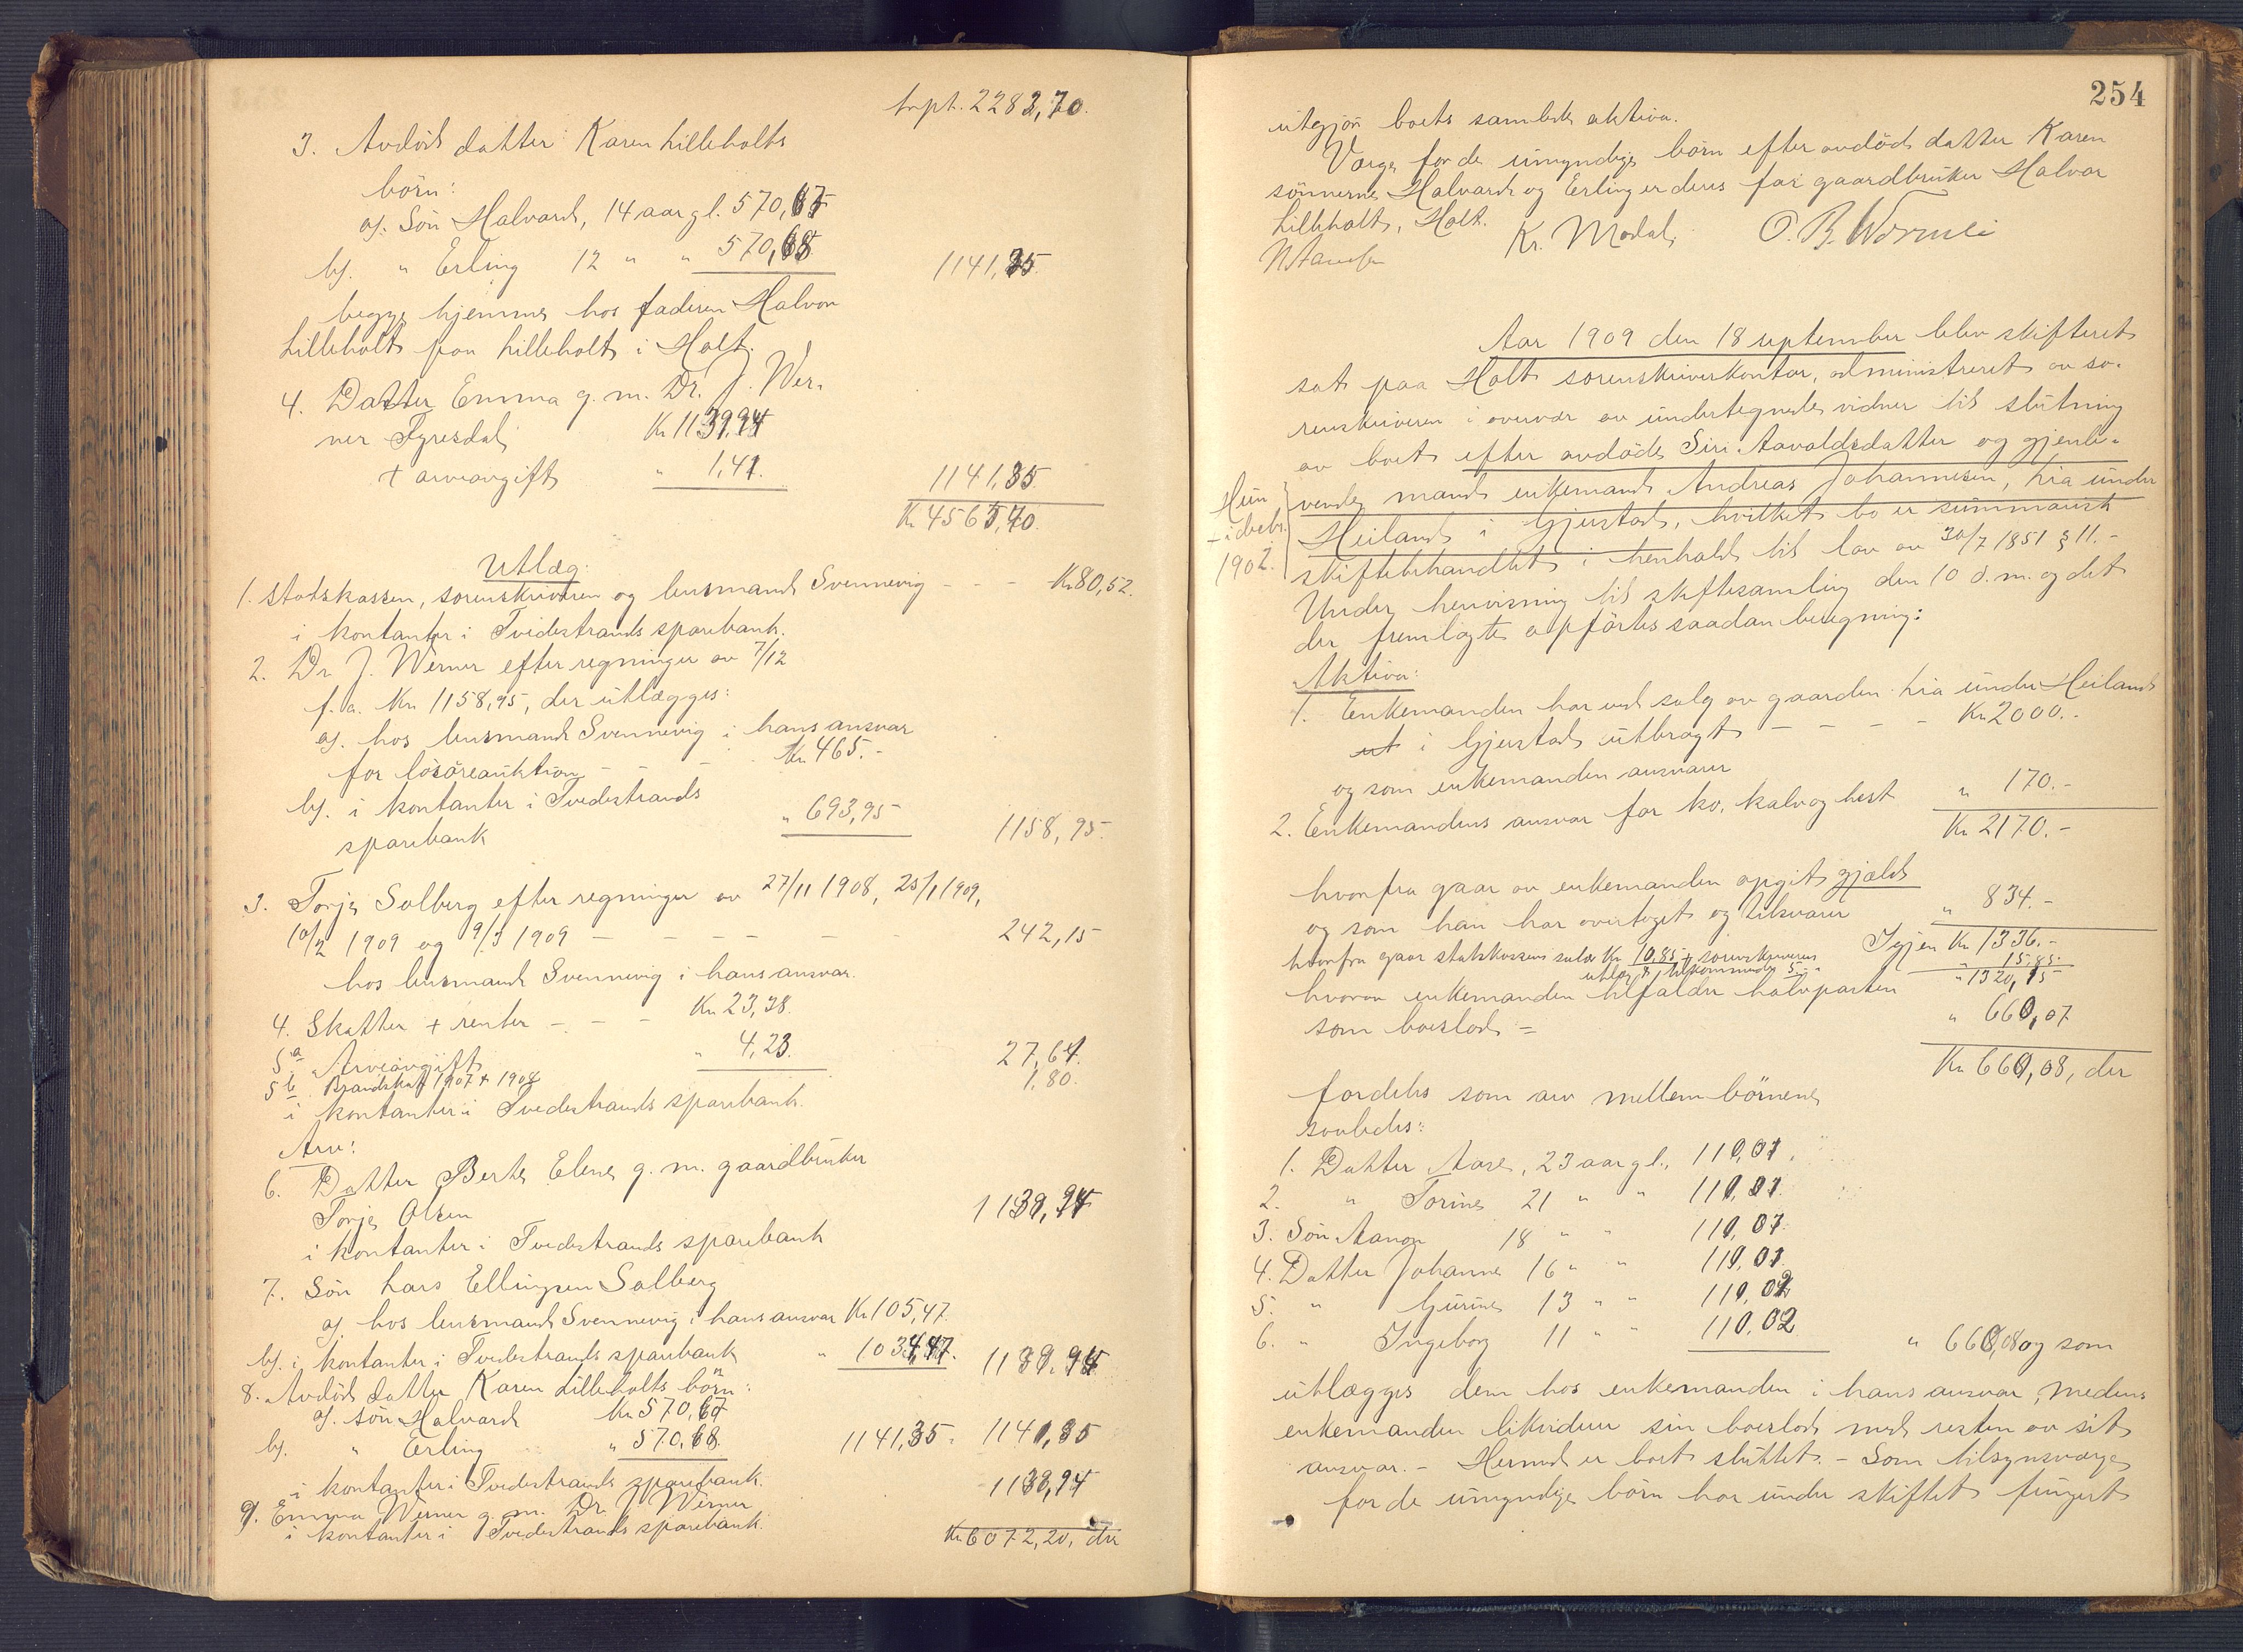 trpt. 2282,70.
3. Avdød datter Karen Lilleholts
børn:
a). Søn Halvard, 14 aar gl. 570,67
b). " Erling 12 " " 570,68 1141,35
begge hjemme hos faderen Halvor
Lilleholt paa Lilleholt i Holt.
4. Datter Emma g. m. Dr. J. Wer-
ner Tyresdal Kr 1139,94
+ arveavgift " 1,41. 1141,35
Kr 4565,40.
Utlæg:
1. Statskassen, sorenskriveren og lensmand Svennevig - - - Kr 80,52.
i kontanter i Tvedestrands sparebank.
2. Dr J. Werner efter regninger av 7/12
f. a. Kr 1158,95, der utlægges:
a). hos lensmand Svennevig i hans ansvar
for løsøreauktion - - - Kr 465.-
b). i kontanter i Tvedestrands
sparebank " 693,95 1158,95.
3. Torje Solberg efter regninger av 27/11 1908, 25/1 1909,
10/2 1909 og 9/3 1909 - - - - - 242,15
hos lensmand Svennevig i hans ansvar.
4. Skatter + renter - - - Kr 23,38.
5a Arveavgift " 4,23. 27,61.
5b Brandskat 1907 + 1908 1,80.
i kontanter i Tvedestrands sparebank.
Arv:
6. Datter Berte Elene g. m. gaardbruker
Torje Olsen 1139,94
i kontanter i Tvedestrands sparebank
7. Søn Lars Ellingsen Solberg
a). hos lensmand Svennevig i hans ansvar Kr 105,47.
b). i kontanter i Tvedestrands sparebank " 1034,47. 1139,94
8. Avdød datter Karen Lilleholts børn:
a). søn Halvard Kr 570,67
b). " Erling " 570,68. 1141,35. 1141,35
i kontanter i Tvedestrands sparebank.
9. Emma Werner g. m. Dr. J. Werner 1139,94
i kontanter i Tvedestrands sparebank.
Kr 6072,20, der
254
utgjør boets samlede aktiva.
Værge for de umyndige børn efter avdød datter Karen
sønnerne Halvard og Erling er deres far gaardbruker Halvor
Lilleholt, Holt. Kr. Modal, O. B. Wormli
Aar 1909 den 18 september blev skifteret
sat paa Holt sorenskriverkontor, administreret av so-
renskriveren i overvær av undertegnede vidner til slutning
av boet efter avdøde Siri Aavoldsdatter og gjenle-
vende mand enkemand Andreas Johannesen, Lia under
Heiland i Gjerstad, hvilket bo er summarisk
skiftebehandlet i henhold til lov av 30/7 1851 § 11.-
Hun
1902.
Under henvisning til skiftesamling den 10 d. m. og det
der fremlagte opførtes saadan beregning:
Aktiva:
1. Enkemanden har ved salg av gaarden Lia under Heiland
ut i Gjerstad utbragt - - - - Kr 2000.-
og som enkemanden ansvarer
2. Enkemandens ansvar for ko, kalv og hest " 170.-
Kr 2170.-
hvorfra gaar av enkemanden opgit gjæld
og som han har overtaget og tilsvarer " 834.-
Igjen Kr 1336.-
hvorfra gaar statskassens salær Kr 10,85 + sorenskriverens
utlæg & tilkommende 5.- " 15,85.
" 1320,15
hvorav enkemanden tilfalder halvparten
som boeslod = " 660,07
Kr 660,08, der
fordeles som arv mellem børnene
saaledes:
1. Datter Aase, 23 aar gl., 110,01.
2. " Torine 21 " " 110,01.
3. Søn Aanon 18 " " 110,01.
4. Datter Johanne 16 " " 110,01
5. " Gurine 13 " " 110,02
6. " Ingeborg 11 " " 110,02 " 660,08 og som
utlægges dem hos enkemanden i hans ansvar, medens
enkemanden likviderer sin boeslod med resten av sit
ansvar.- Hermed er boet sluttet.- Som tilsynsværge
for de umyndige børn har under skiftet fungert